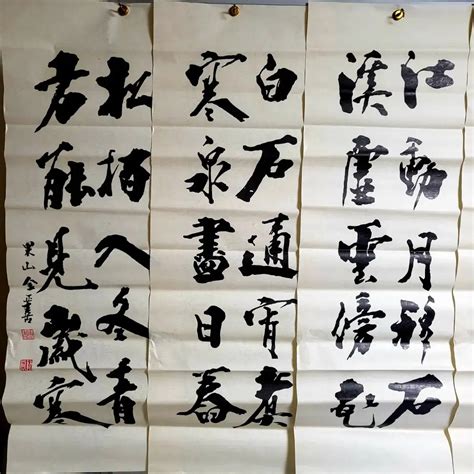 江動月移石
溪虛雲傍花
白石通宵煮
寒泉盡日舂
松栢入冬青
方能見歲寒
果山金正喜